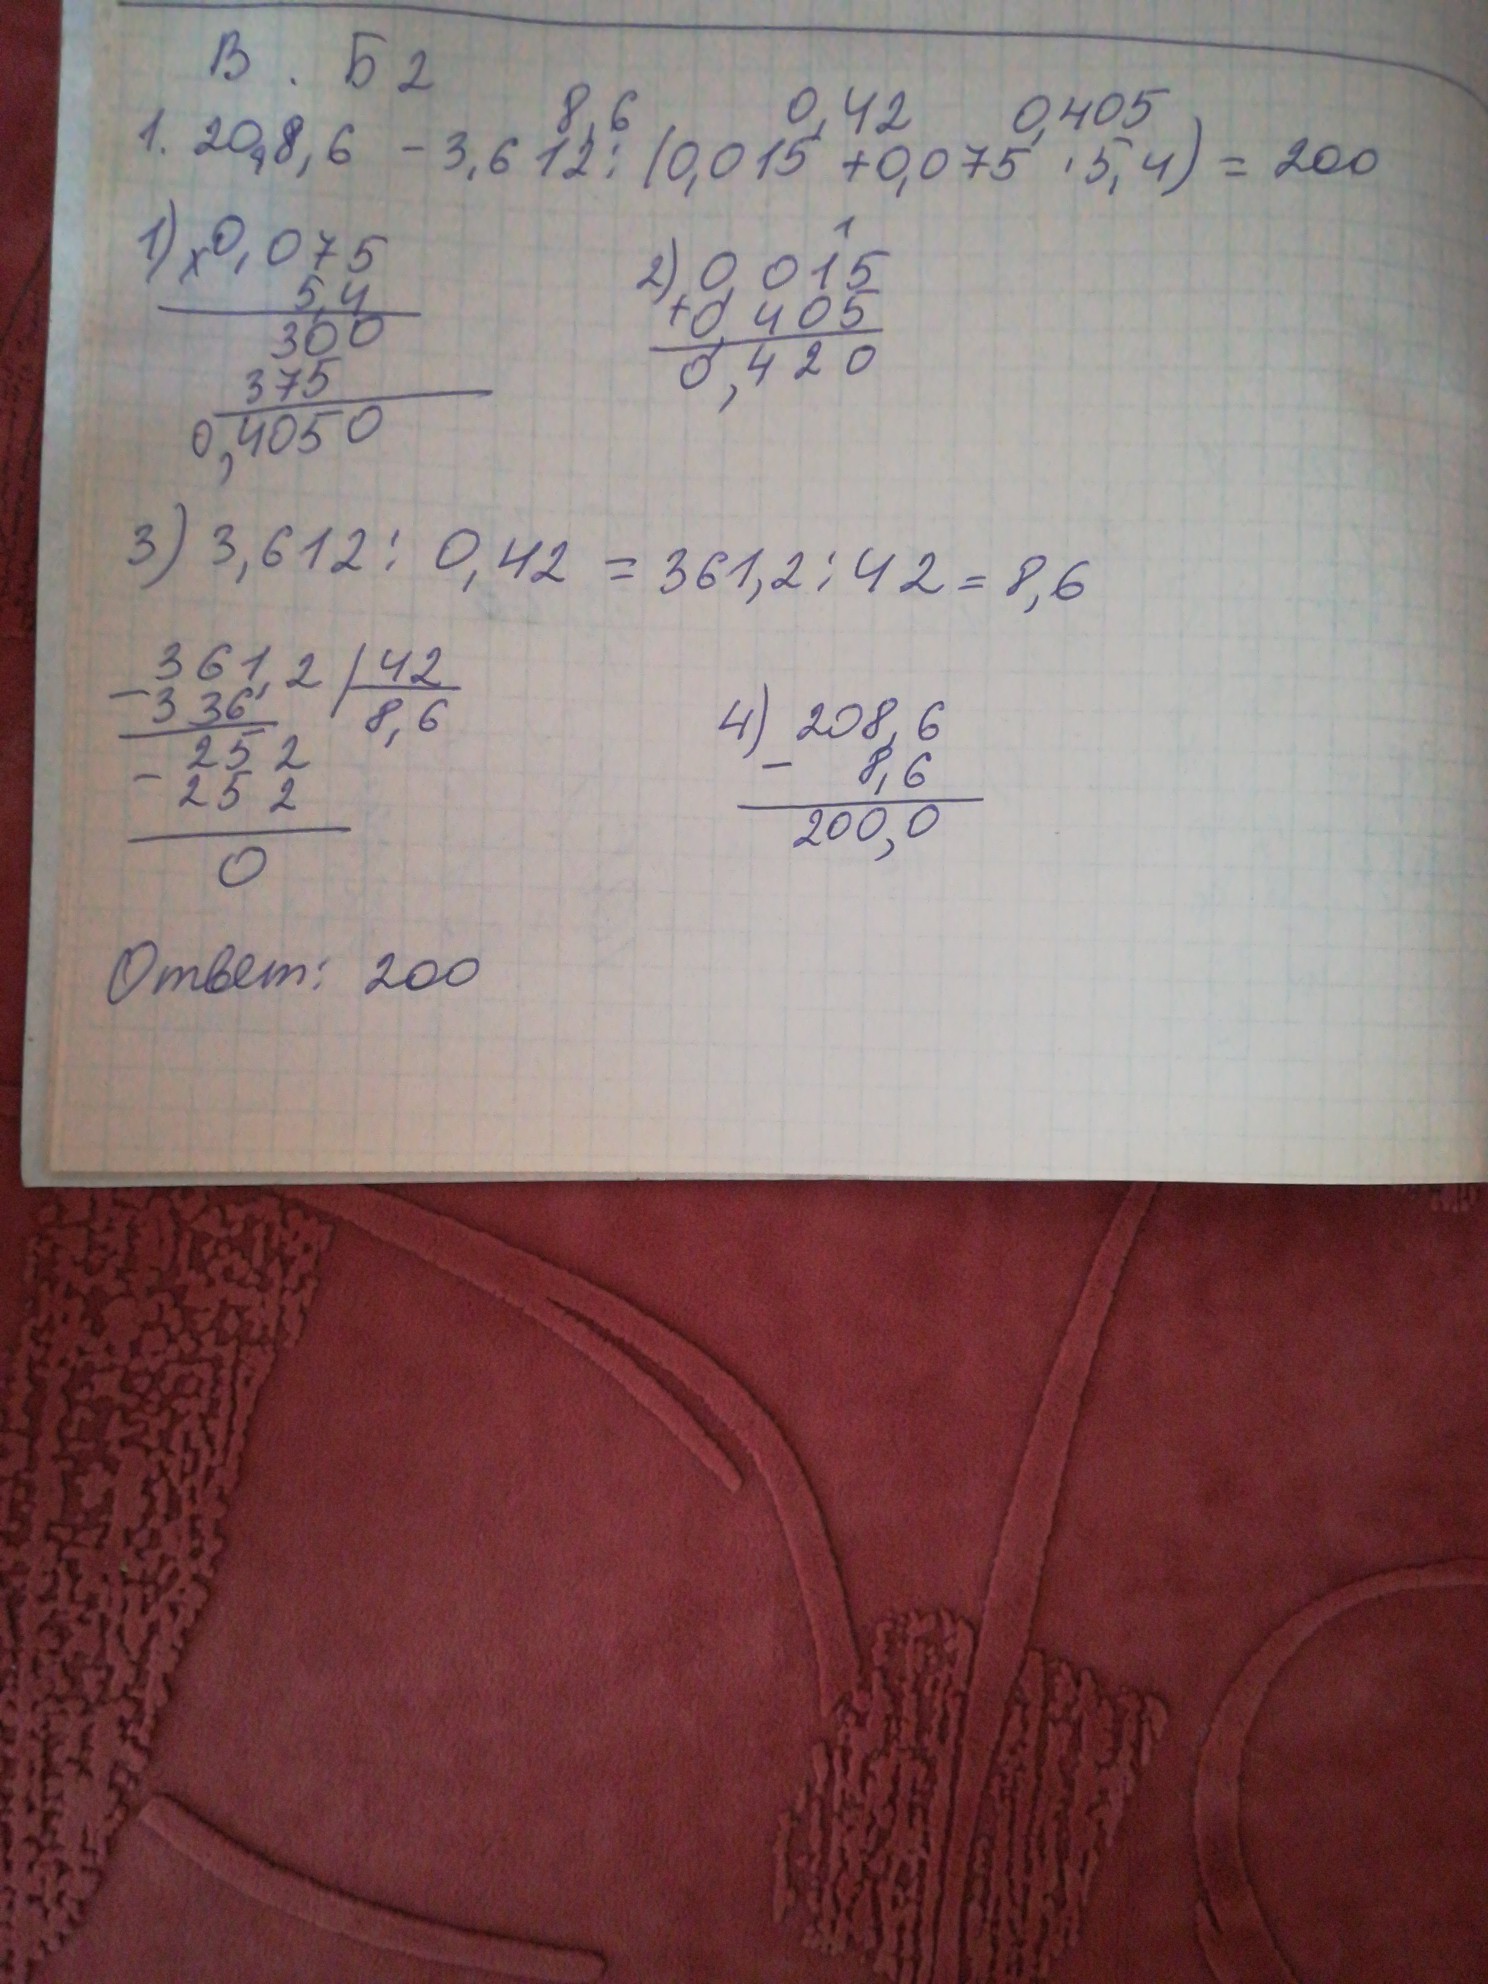 В. Б2
8,6 0,42 0,405
1. 208,6 - 3,612 : (0,015 + 0,075 · 5,4) = 200
1) × 0,075
5,4
300
375
0,4050
1
2) 0,015
+ 0,405
0,420
3) 3,612 : 0,42 = 361,2 : 42 = 8,6
- 361,2 | 42
336 8,6
- 252
252
0
4) 208,6
- 8,6
200,0
Ответ: 200